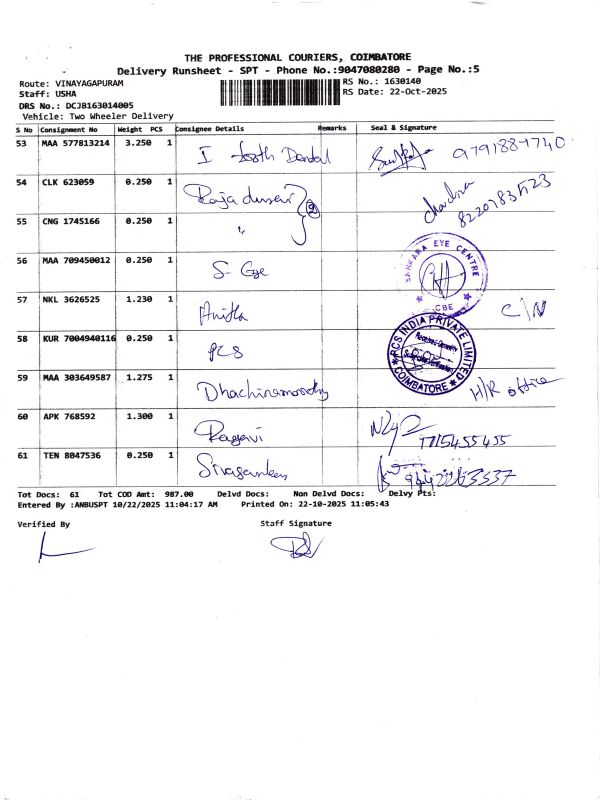 THE PROFESSIONAL COURIERS, COIMBATORE
Delivery Runsheet - SPT - Phone No.:9047080280 - Page No.:5
Route: VINAYAGAPURAM
RS No.: 1630140
Staff: USHA
RS Date: 22-Oct-2025
DRS No.: DCJB163014005
Vehicle: Two Wheeler Delivery
S No Consignment No Weight PCS Consignee Details Remarks Seal & Signature
53 MAA 577813214 3.250 1 I tooth Dental
54 CLK 623059 0.250 1 Raja durai 2
55 CNG 1745166 0.250 1 "
56 MAA 709450012 0.250 1 S- Eye SANKARA EYE CENTRE CBE
57 NKL 3626525 1.230 1 Anitha C/N
58 KUR 7004940116 0.250 1 PCS RCS INDIA PRIVATE LIMITED COIMBATORE
59 MAA 303649587 1.275 1 Dhachinamoorthy H/R office
60 APK 768592 1.300 1 Ragavi
61 TEN 8047536 0.250 1 Sivasankari
Tot Docs: 61 Tot COD Amt: 987.00 Delvd Docs: Non Delvd Docs: Delvy Pts:
Entered By :ANBUSPT 10/22/2025 11:04:17 AM Printed On: 22-10-2025 11:05:43
Verified By Staff Signature